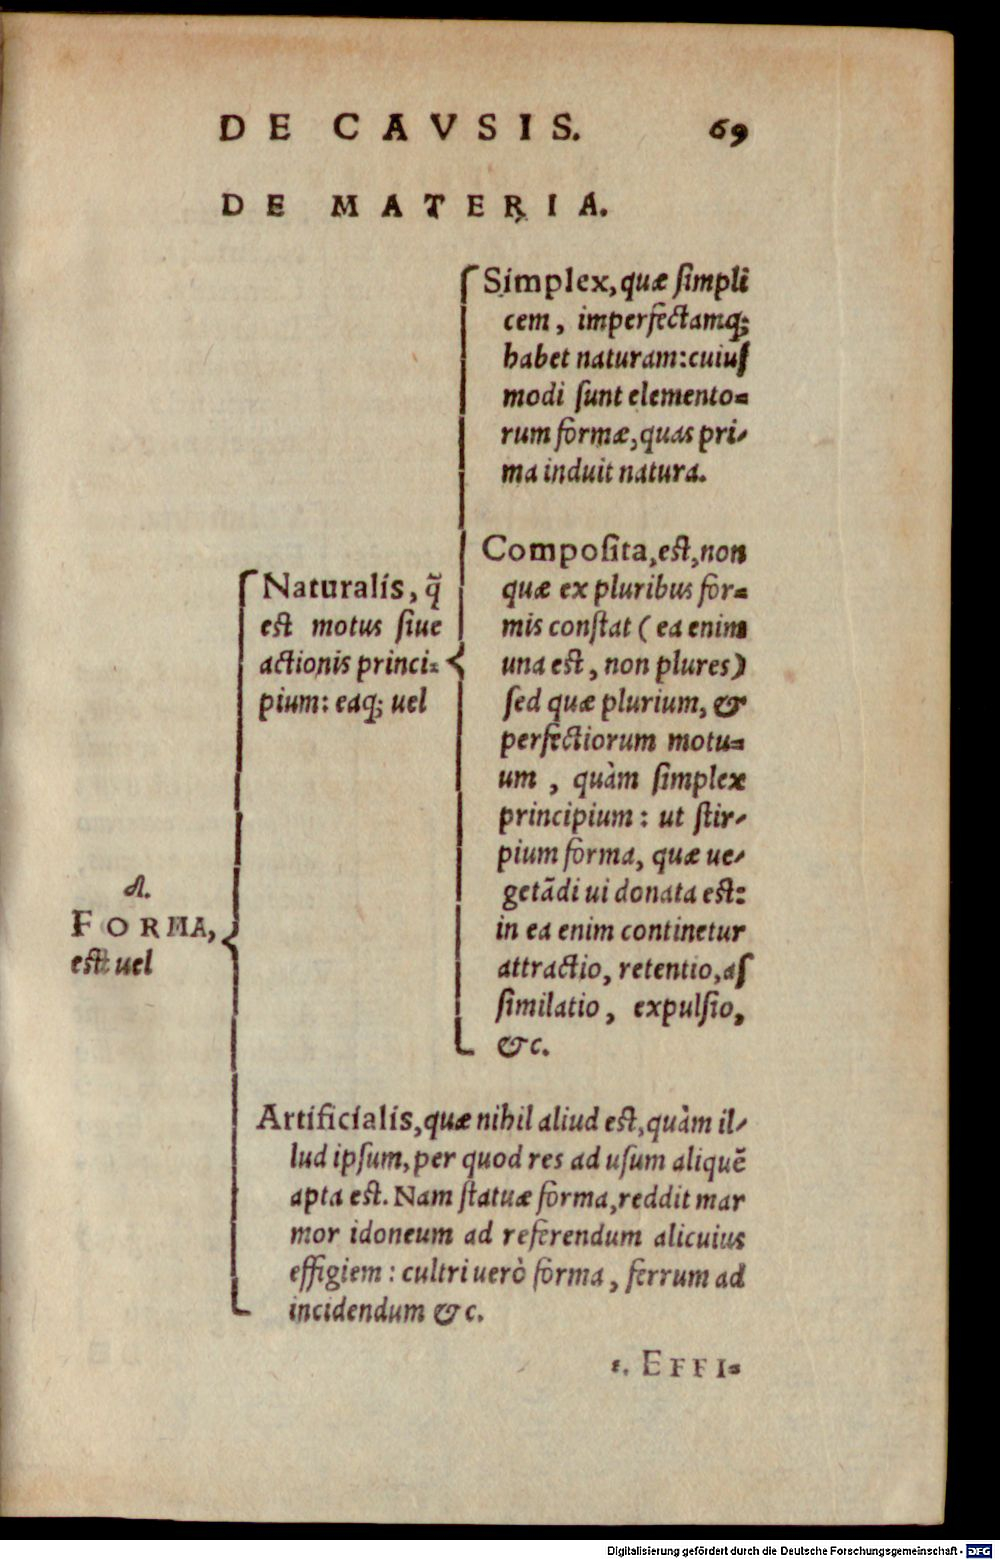 DE CAVSIS. 69
DE MATERIA.
A.
FORMA,
est uel
Naturalis, q̃
est motus siue
actionis princi-
pium: eaq; uel
Simplex, quæ simpli
cem, imperfectamq;
habet naturam: cuius
modi sunt elemento-
rum formæ, quas pri-
ma induit natura.
Composita, est, non
quæ ex pluribus for-
mis constat (ea enim
una est, non plures)
sed quæ plurium, &
perfectiorum motu-
um, quàm simplex
principium: ut stir-
pium forma, quæ ue-
getãdi ui donata est:
in ea enim continetur
attractio, retentio, as
similatio, expulsio,
&c.
Artificialis, quæ nihil aliud est, quàm il-
lud ipsum, per quod res ad usum aliquẽ
apta est. Nam statuæ forma, reddit mar
mor idoneum ad referendum alicuius
effigiem: cultri uerò forma, ferrum ad
incidendum &c.
EFFI-
Digitalisierung gefördert durch die Deutsche Forschungsgemeinschaft - DFG